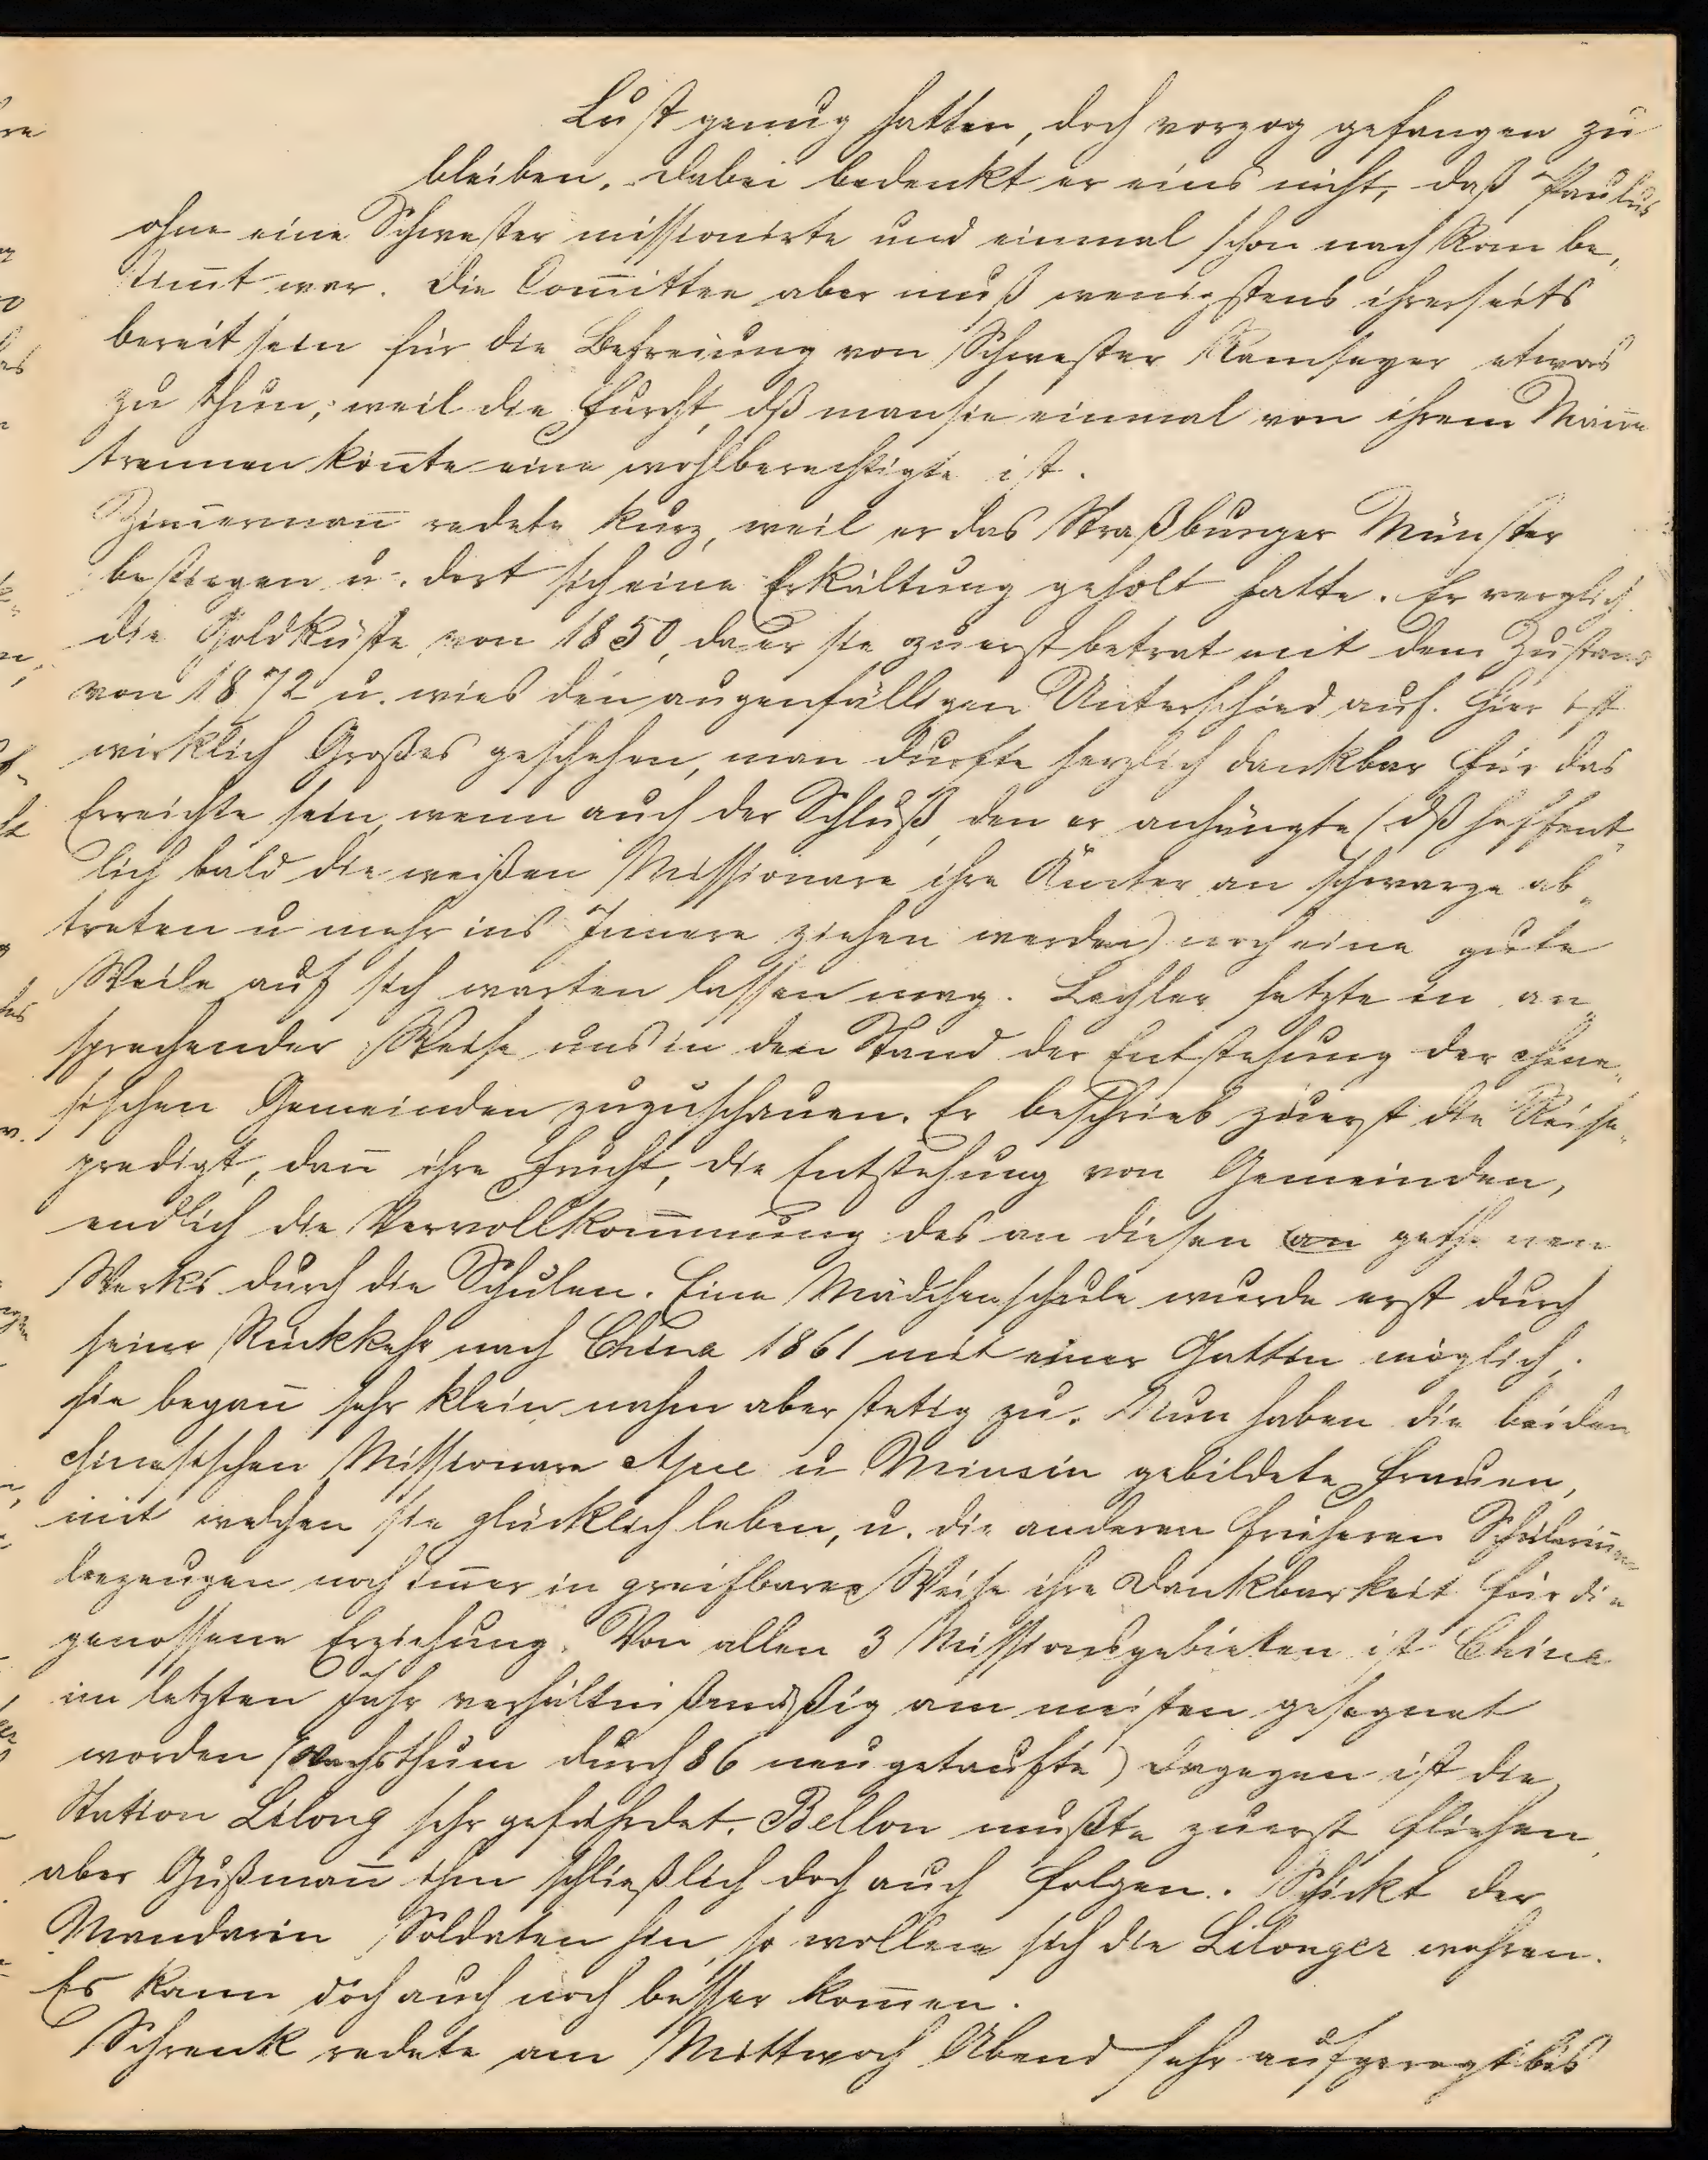 Lust genug hatten, doch vorzog gefangen zu
bleiben. Dabei bedenkt er eins nicht, daß Paulus
ohne eine Schwester missionirte und einmal schon nach Rom be„
stim̅t war. Die Com̅ittee aber muß wenigstens ihrerseits
bereit sein für die Befreiung von Schwester Ramseyer etwas
zu thun, weil die Furcht, dß man sie einmal von ihrem Man̅e
trennen kön̅te eine wohlberechtigte ist.
Zim̅erman̅ redete kurz, weil er das Straßburger Münster
bestiegen u. dort sich eine Erkältung geholt hatte. Er verglich
die Goldküste von 1850, da er sie zuerst betrat mit dem Zustand
von 1872 u. wies den augenfälligen Unterschied auf. Hier ist
wirklich Großes geschehen, man durfte herzlich dankbar für das
Erreichte sein, wenn auch der Schluß, den er anhängte (dß hoffent„
lich bald die weißen Missionare ihre Ämter an schwarze ab„
treten u mehr ins Innere ziehen werden) noch eine gute
Weile auf sich warten lassen mag. Lechler setzte in an„
sprechender Weise uns in den Stand der Entstehung der chine„
sischen Gemeinden zuzuschauen. Er beschrieb zuerst die Reise„
predigt, dan̅ ihre Frucht, die Entstehung von Gemeinden,
endlich die Vervollkom̅nung des an diesen an gethanen
Werks durch die Schulen. Eine Mädchenschule wurde erst durch
seine Rückkehr nach China 1861 mit einer Gattin möglich,
sie began̅ sehr klein nahm aber stetig zu. Nun haben die beiden
chinesischen Missionare u Minsin gebildete Frauen,
mit welchen sie glücklich leben, u. die anderen früheren Schülerin̅en
bezeugen noch im̅er in greifbarer Weise ihre Dankbarkeit für die
genossene Erziehung. Von allen 3 Missionsgebieten ist China
im letzten Jahr verhältnißmäßig am meisten gesegnet
worden (Wachsthum durch 86 neugetaufte) dagegen ist die
Station Lilong sehr gefährdet. Bellon mußte zuerst fliehen,
aber Gußman̅ ihm schließlich doch auch folgen. Schickt der
Mandarin Soldaten hin, so wollen sich die Lilonger wehren.
Es kann doch auch noch besser kom̅en.
Schrenk redete am Mittwoch Abend sehr aufgeregt bis